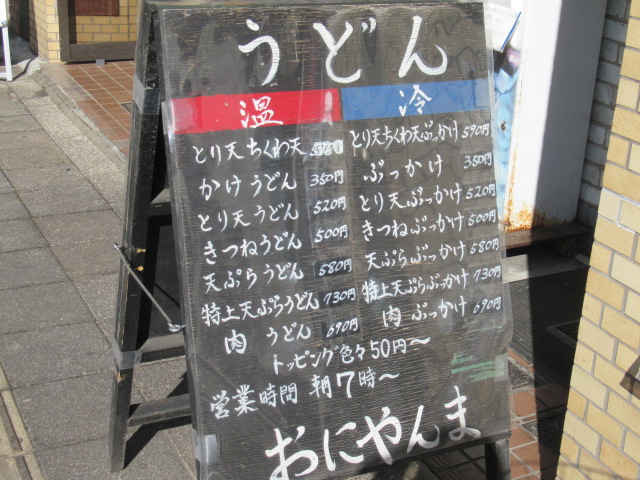 うどん
温 冷
とり天ちくわ天 とり天ちくわ天ぶっかけ 590円
かけうどん 350円 ぶっかけ 350円
とり天うどん 520円 とり天ぶっかけ 520円
きつねうどん 500円 きつねぶっかけ 500円
天ぷらうどん 580円 天ぷらぶっかけ 580円
特上天ぷらうどん 730円 特上天ぷらぶっかけ 730円
肉うどん 690円 肉ぶっかけ 690円
トッピング色々50円～
営業時間 朝7時～
おにやんま